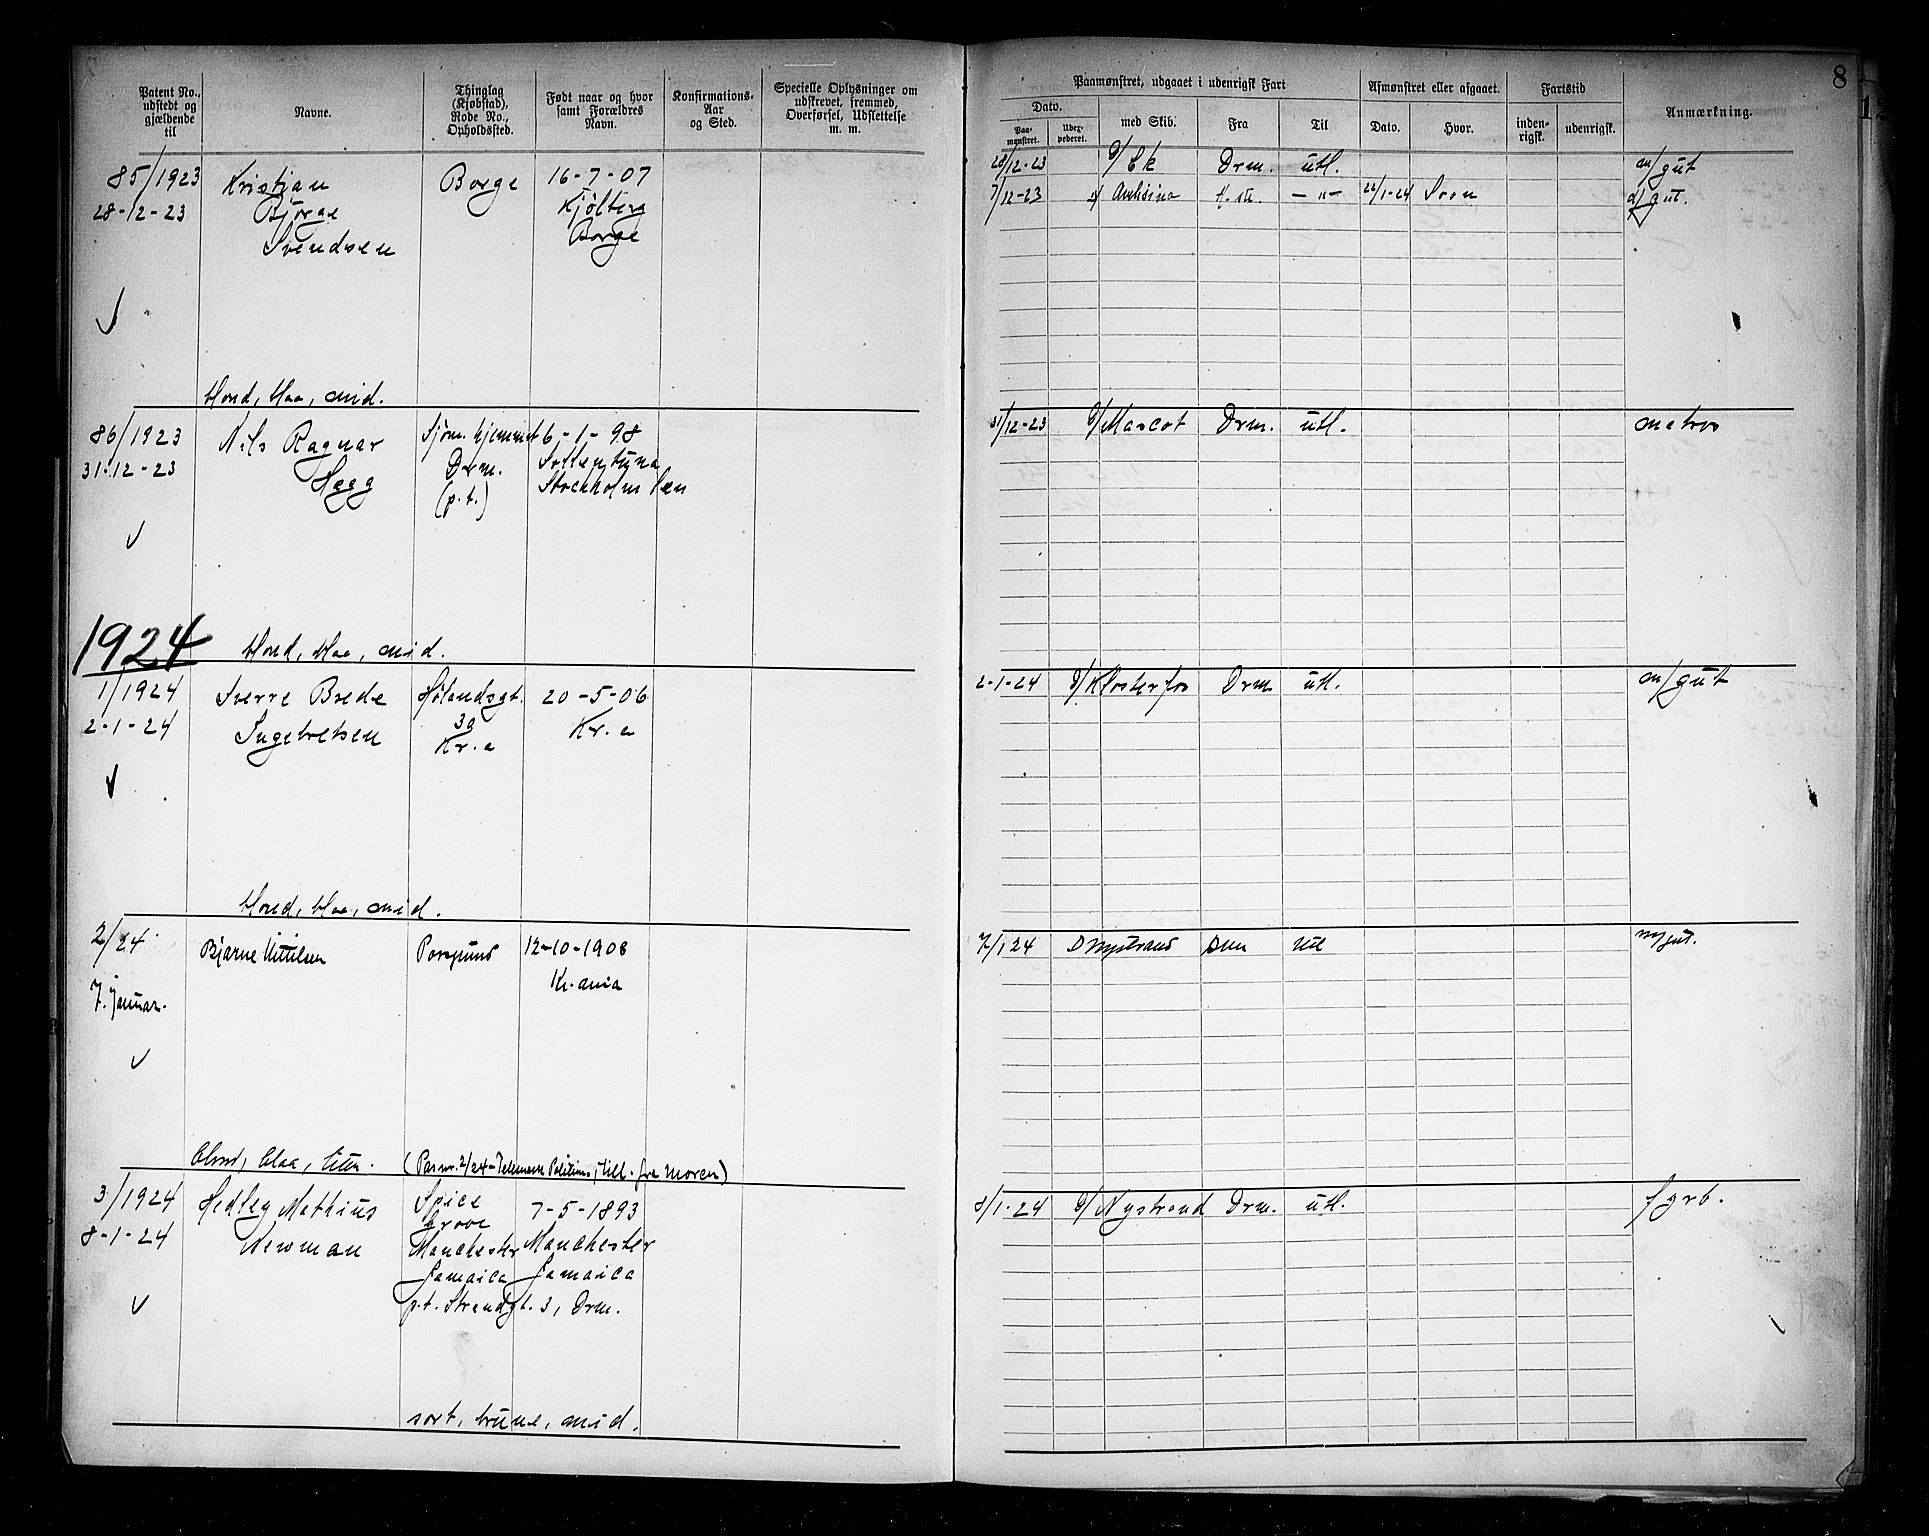 8
12
Patent No., udstedt og gjældende til
Navne.
Thinglag (Kjøbstad), Rode No., Opholdssted.
Født naar og hvor samt Forældres Navn.
Konfirmations-Aar og Sted.
Specielle Oplysninger om udskrevet, fremmed, Overførsel, Udslettelse m. m.
Paamønstret, udgaaet i udenrigsk Fart
Afmønstret eller afgaaet.
Fartstid
Anmærkning.
Dato.
Paa-mønstret.
med Skib.
Fra
Til
Dato.
Hvor.
inden-rigsk.
udenrigsk.
85/1923 Kristian Borge 16-7-07
28-12-23 Bjørge Kjølberg
Svendsen Borge
28/12-23 D/ Ek Drm. utl. m/gut
7/12-23 - " - 22/1-24 gut.
blond, blaa, mid.
86/1923 Nils Ragnar Sjøm. hjemmet 6-1-98
31-12-23 Hægg Drm. Sollentuna
(p.t.) Stockholm læn
31/12-23 D/Mascot Drm. utl. matros
1924
blond, blaa, mid.
1/1924 Sverre Brede Hølandsgt. 20-5-06
2-1-24 Ingebretsen Kr.a Kr.a
2-1-24 D/Klosterfos Drm utl. m/gut
blond, blaa, mid.
2/24 Bjarne Kittilsen Porsgrund 12-10-1908
7. januar. Kr.ania
7/1 24 D Nystrand Drm utl m/gut.
blond, blaa, liten. (Pas nr. 2/24 - Telemark Politim., till. fra moren)
3/1924 Hedley Mathius Spice 7-5-1893
8-1-24 Newman Grove Manchester
Manchester Jamaica
Jamaica
p.t. Strandgt. 3, Drm.
8/1-24 D/Nystrand Drm. utl. fyrb.
sort, brune, mid.